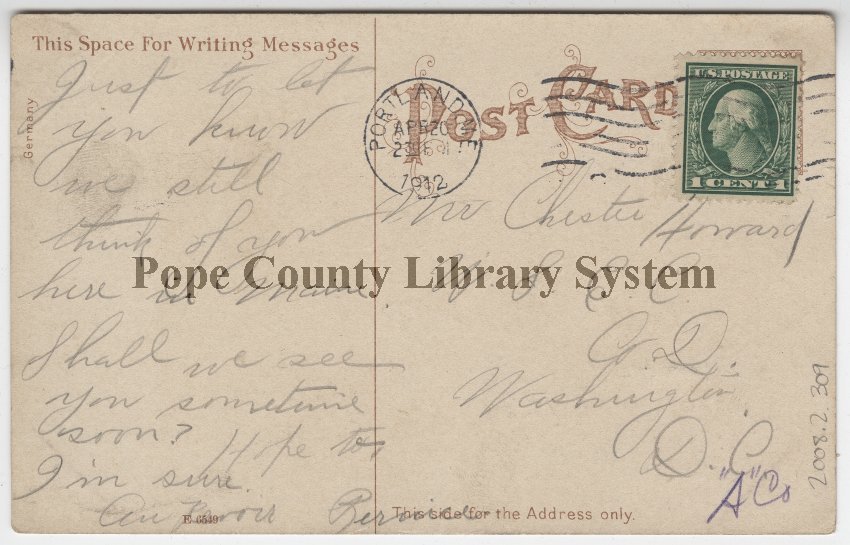 This Space For Writing Messages
Germany
Just to let
you know
we still
think of you
here in Maine.
Shall we see
you sometime
soon?
Hope to,
I'm sure.
Au revoir
Bernice
E 6549
POST CARD
PORTLAND ME
APR 20
1912
U.S. POSTAGE
1 CENT 1
Mr Chester Howard
Co. D.
Washington,
D.C.
"A" Co
This side for the Address only.
2008.2.309
Pope County Library System